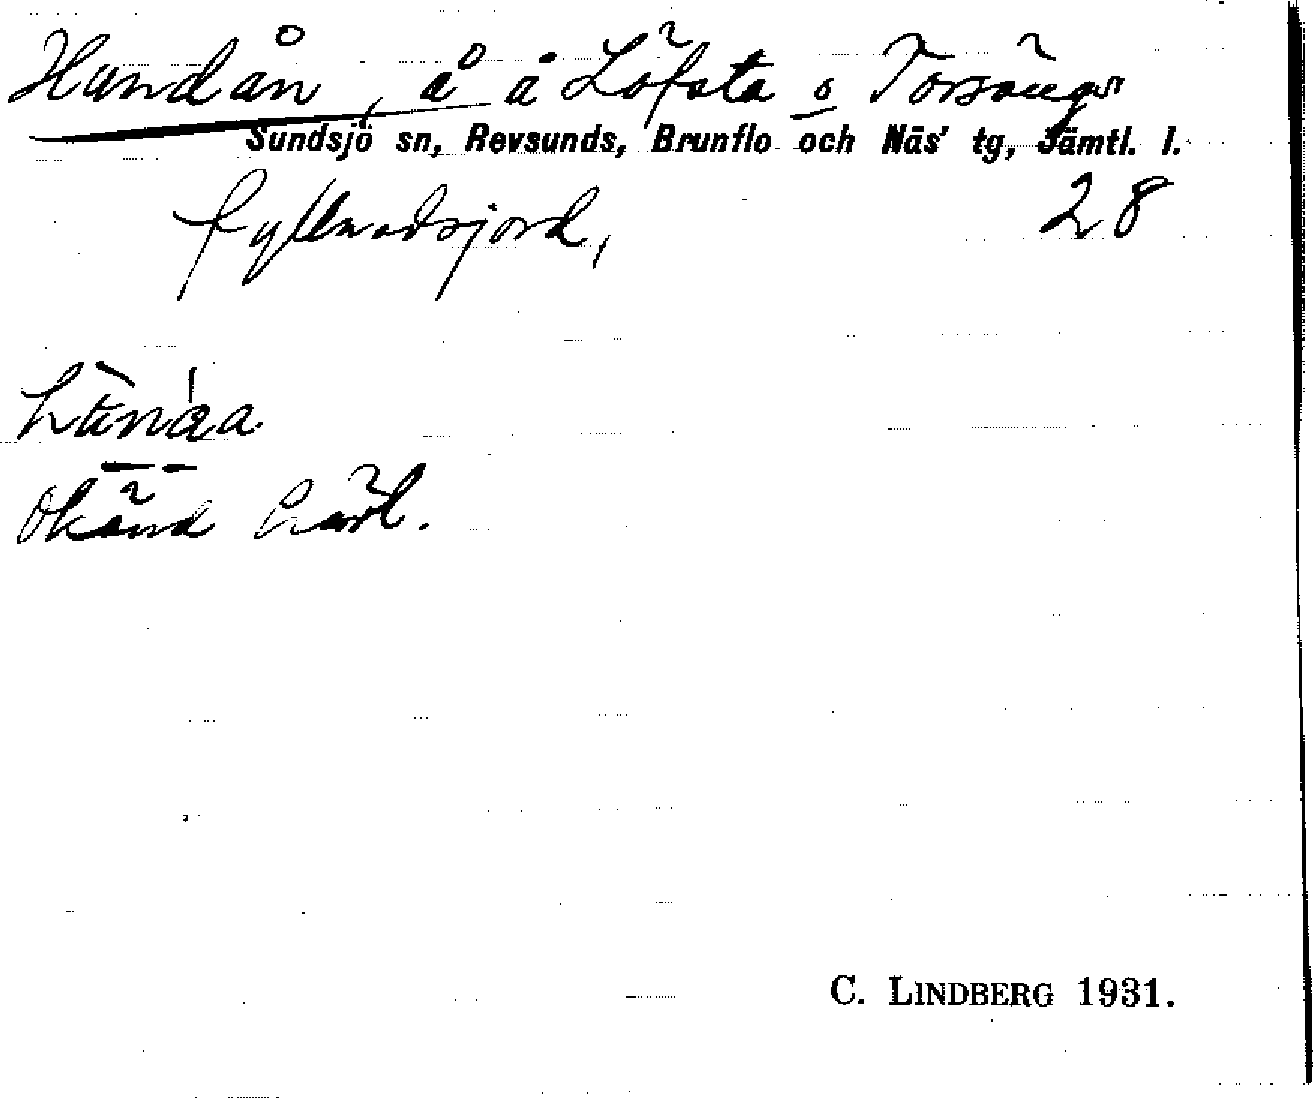 Hundån, å å Löfsta o Torsängs
Sundsjö sn, Revsunds, Brunflo och Näs' tg, Jämtl. l.
fyllnadsjord, 28
Okänd härl.
C. LINDBERG 1931.